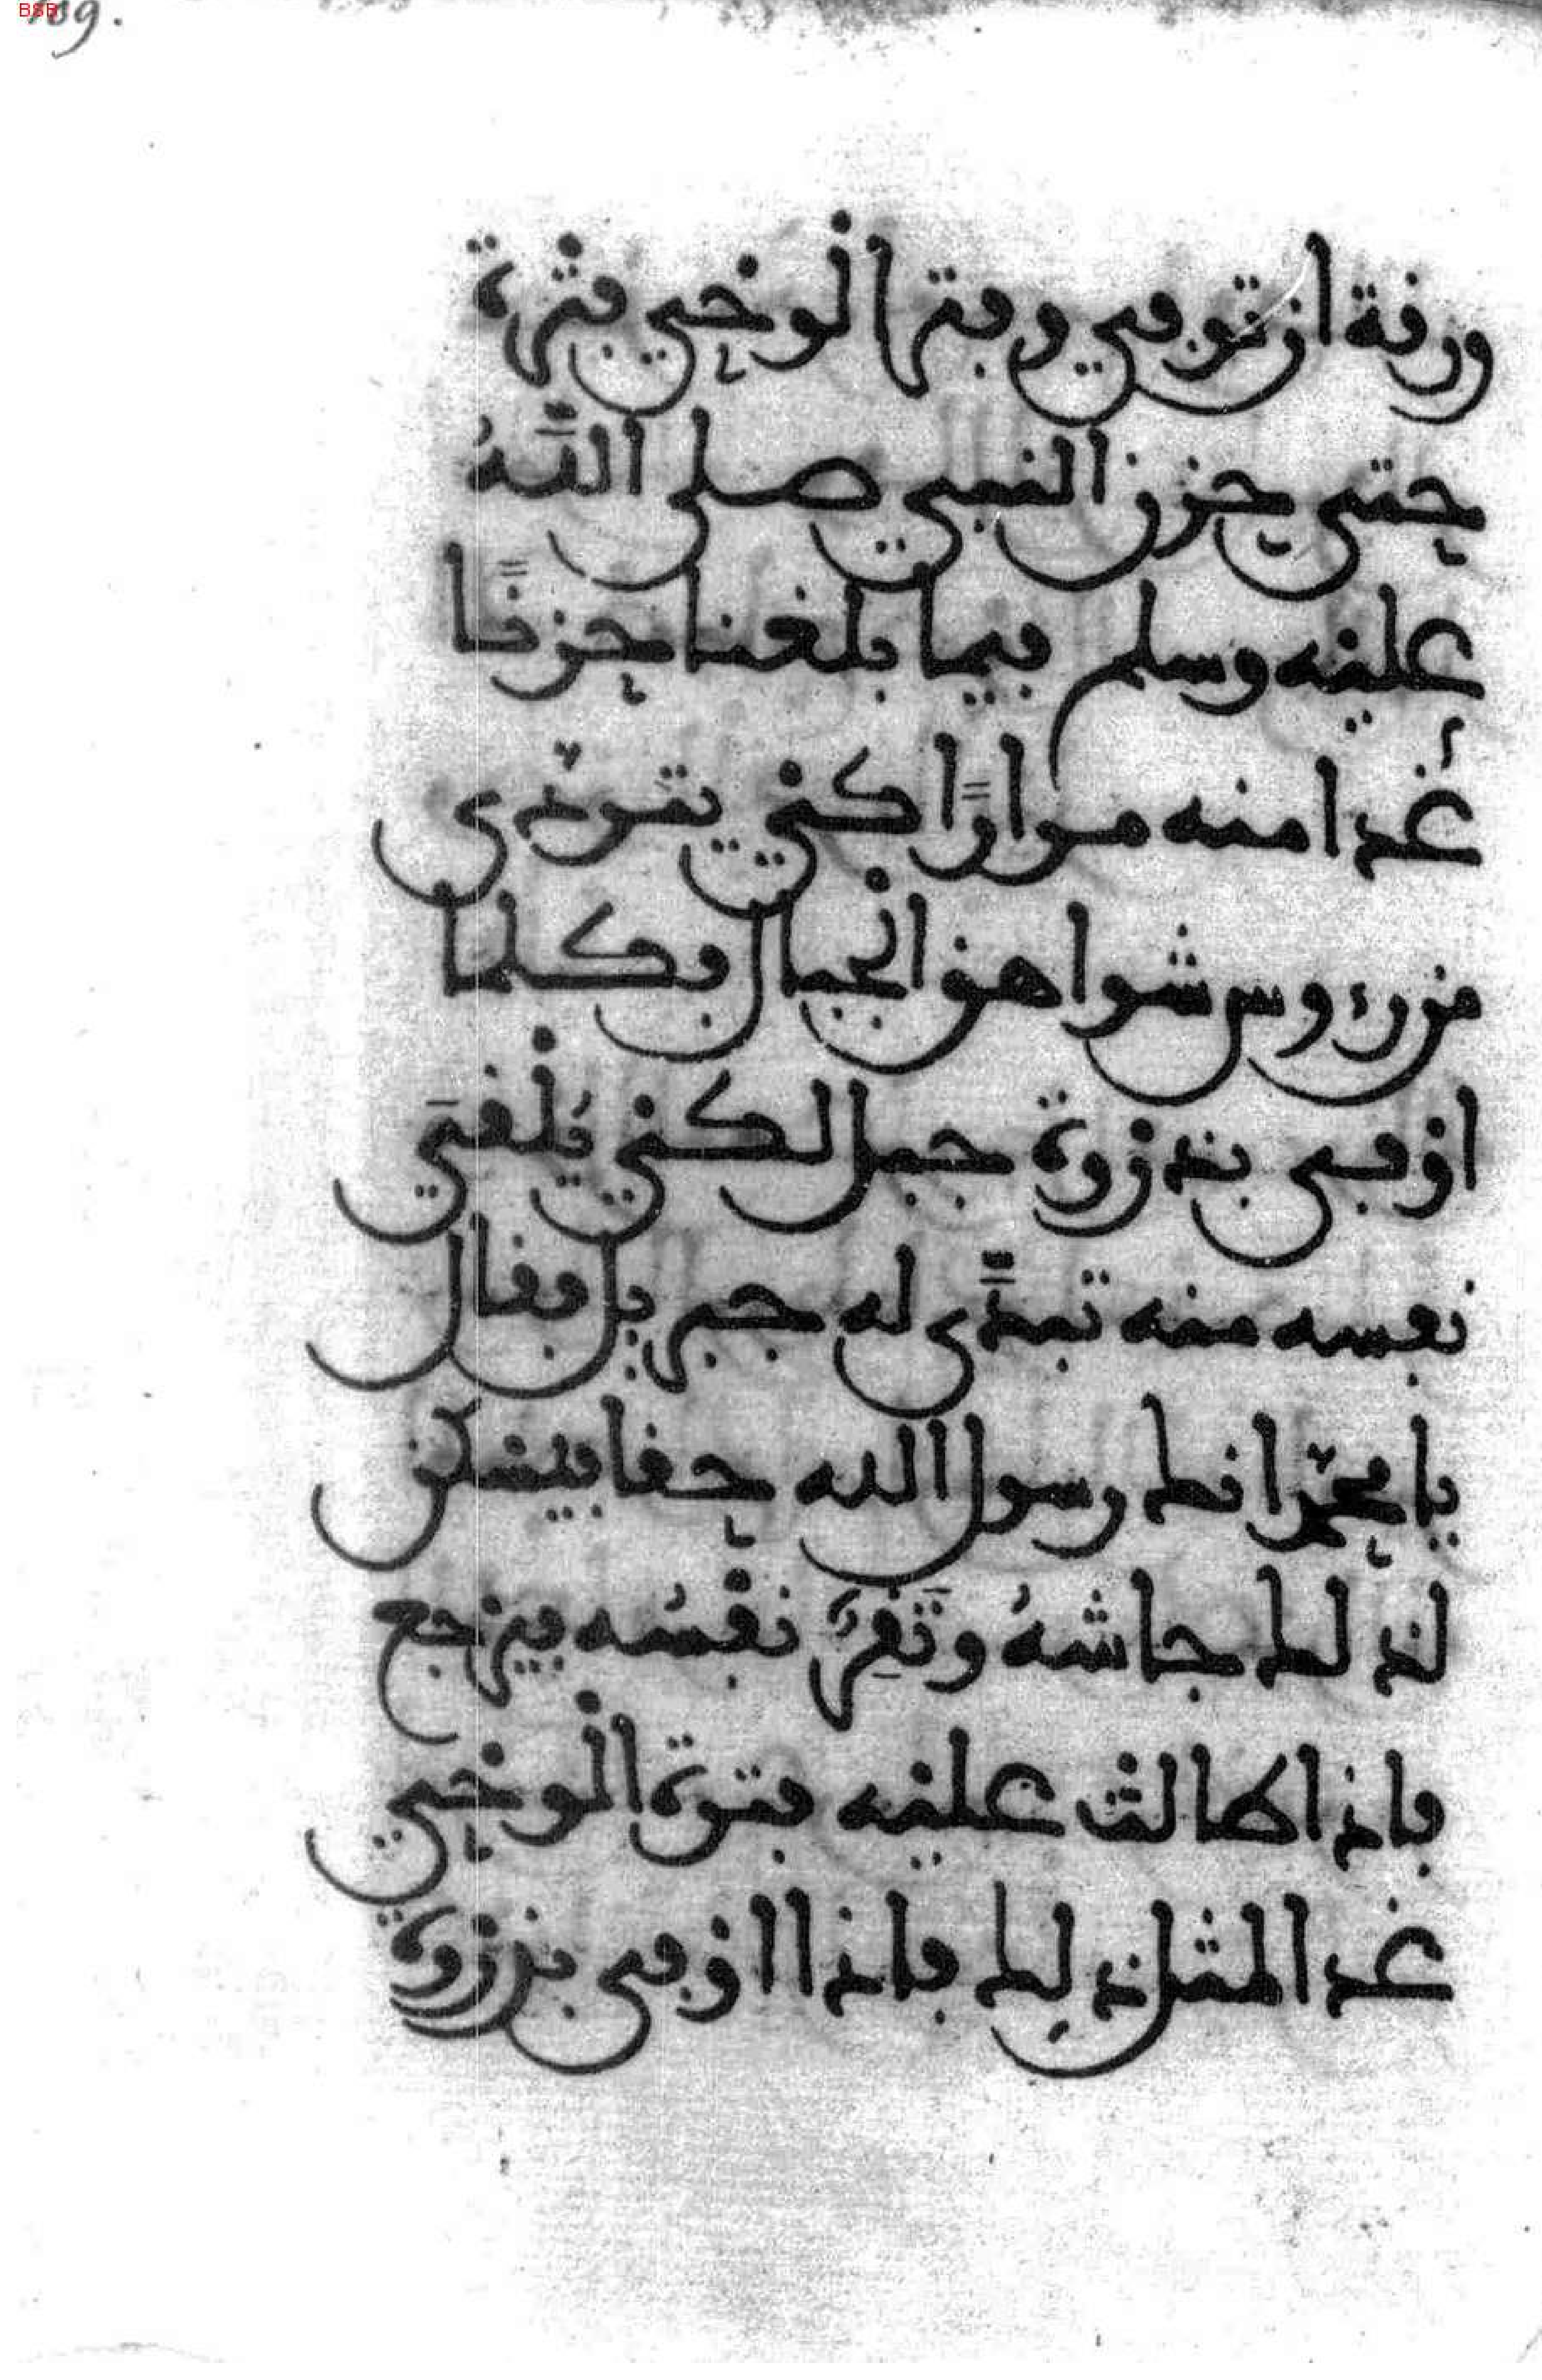 109.
BSB
ورقة ان توفي وفتر الْوحْي فتْرة
حتى حزن النبي صلى اللَّهُ
عليْه وسلم فيما بلغنا حزنًا
غدا منه مرارًا كيْ يَتَردّى
من رءوس شواهق الْجبال فكلما
اوْفى بذروة جبل لكيْ يُلْقيَ
نفسه منه تبدَّى له جبريل فقال
يا محمّد انك رسول الله حقا فيسْكن
لذلك جاشهُ وتَقِرُّ نفْسُه فيرْجع
فاذا طالت عليْه فترة الْوحْي
غدا لمثل ذلك فاذا اوْفى بذروة